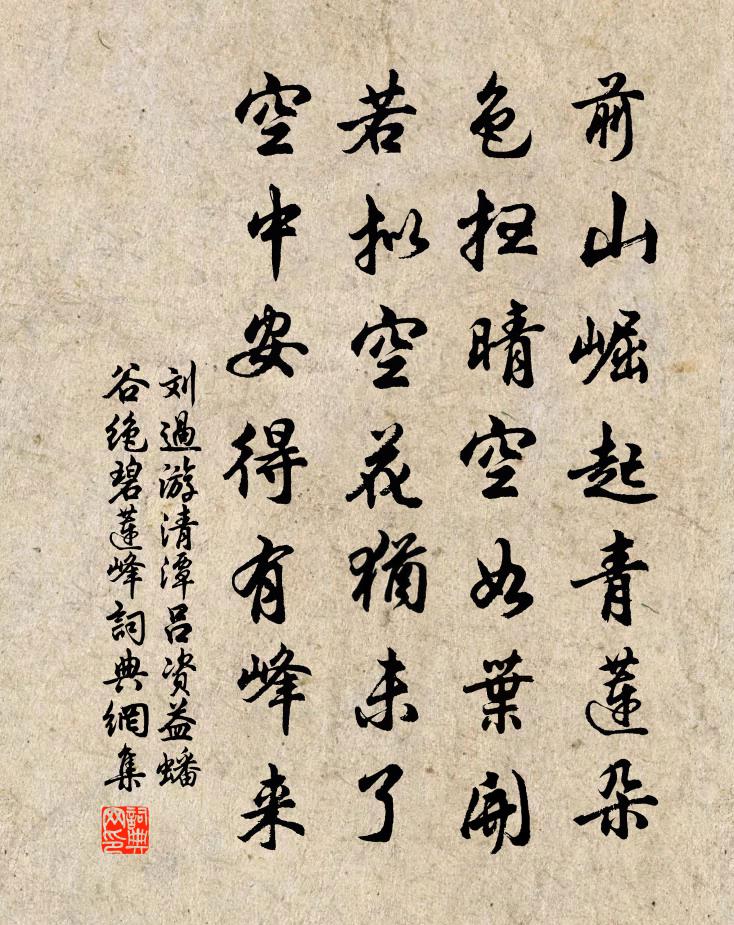 前山崛起青莲朵
色扫晴空如叶開
若拟空花猶未了
空中安得有峰来
刘過游清潭吕资益蟠
谷绝碧莲峰詞典網集
詞典网印